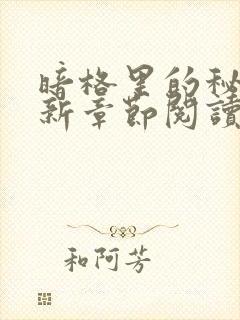 暗格里的秘
新章節閱讀
和阿芳